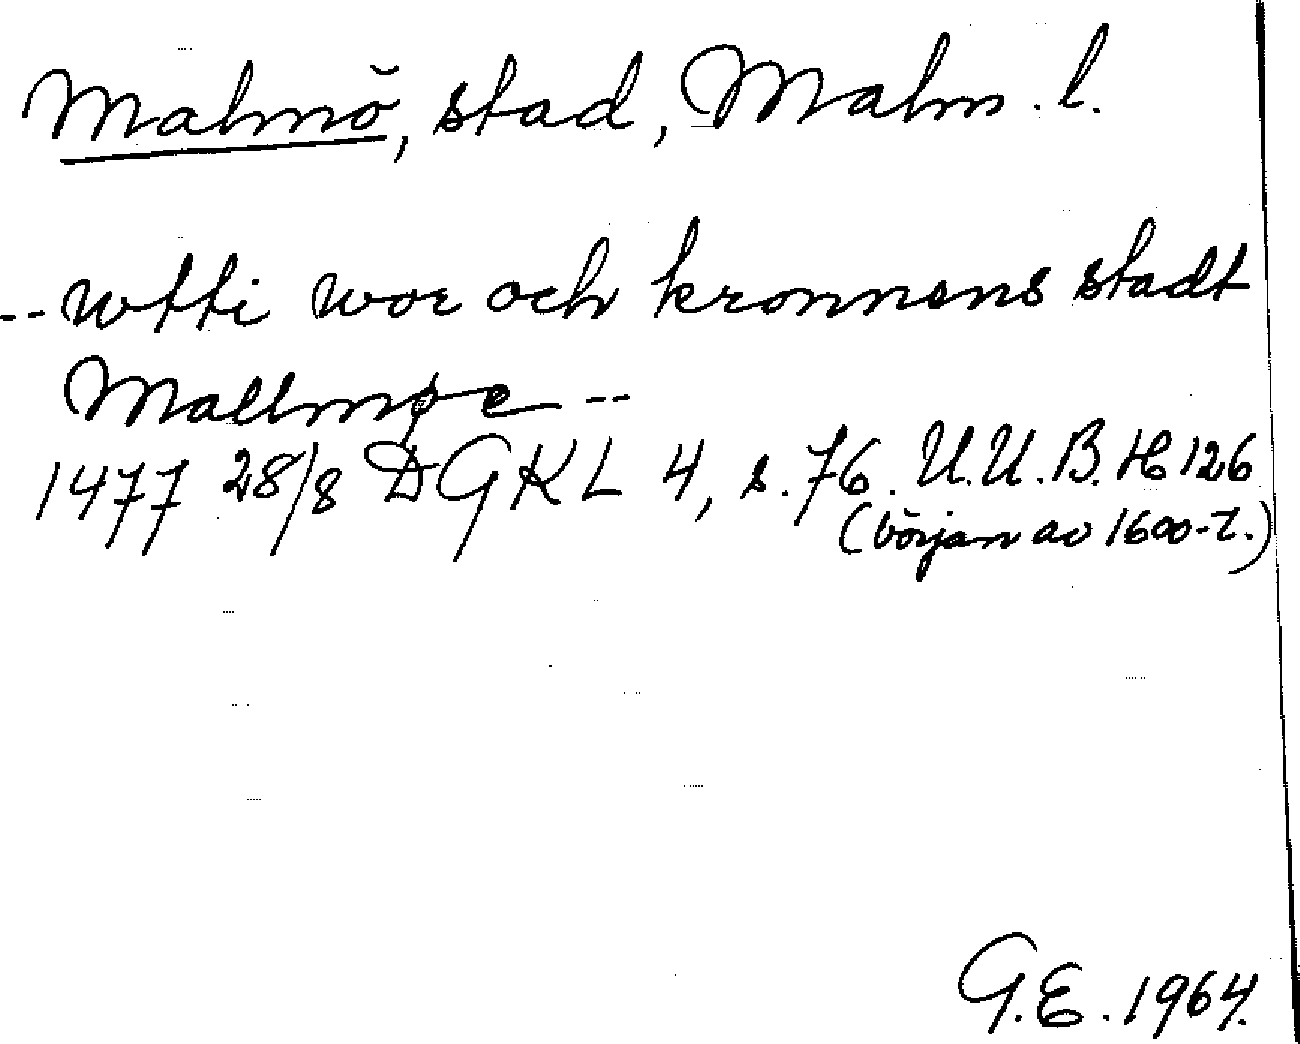 Malmö, stad, Malm. l.
-- wtti wor och kronnens stadt
Mallmøe --
1477 28/8 DGKL 4, s. 76. U.U.B. H 126
(början av 1600-t.)
G.E. 1964.